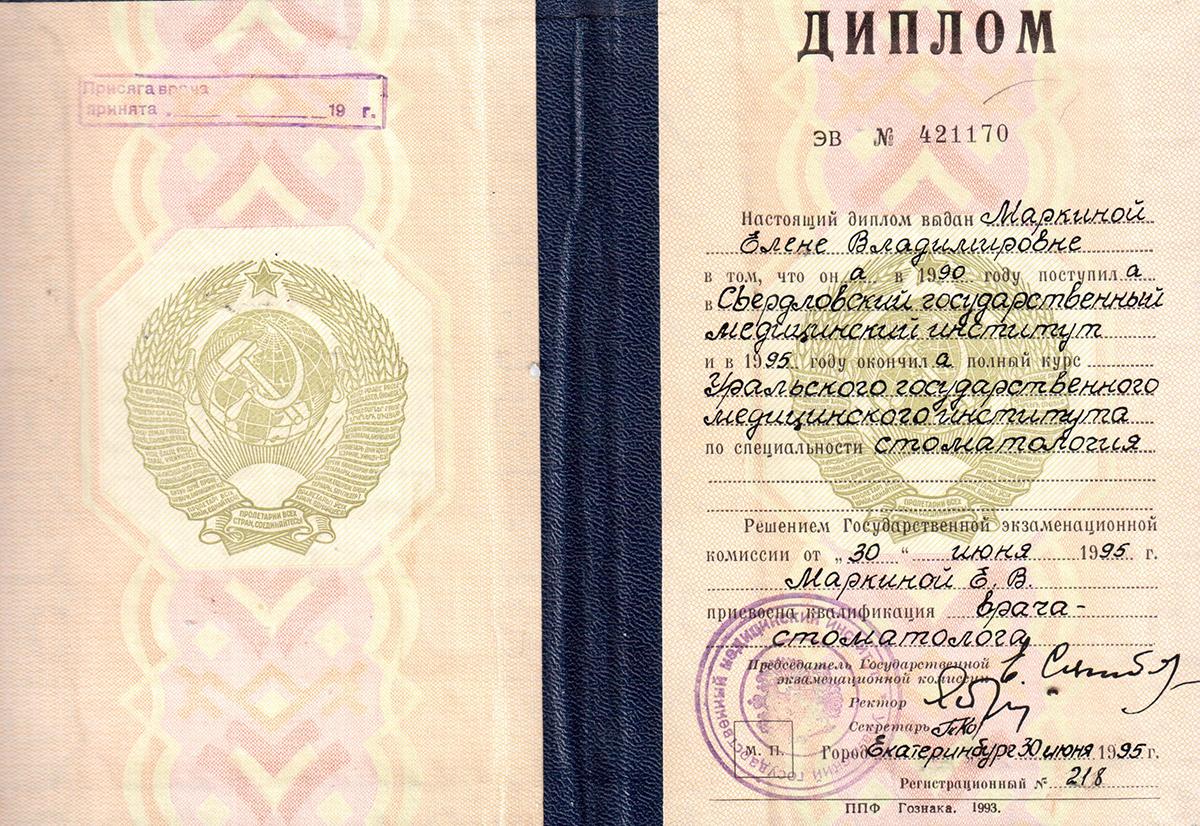 Присяга врача
принята . 19 г.
ПРОЛЕТАРИИ ВСЕХ
СТРАН, СОЕДИНЯЙТЕСЬ!
ДИПЛОМ
ЭВ № 421170
Настоящий диплом выдан Маркиной
Елене Владимировне
в том, что он а в 1990 году поступил а
в Свердловский государственный
медицинский институт
и в 1995 году окончил а полный курс
Уральского государственного
медицинского института
по специальности стоматология
Решением Государственной экзаменационной
комиссии от „30“ июня 1995 г.
Маркиной Е. В.
присвоена квалификация врача-
стоматолога
Председатель Государственной
экзаменационной комиссии
Ректор
Секретарь
М. П.
Город Екатеринбург 30 июня 1995 г.
Регистрационный № 218
ППФ Гознака. 1993.